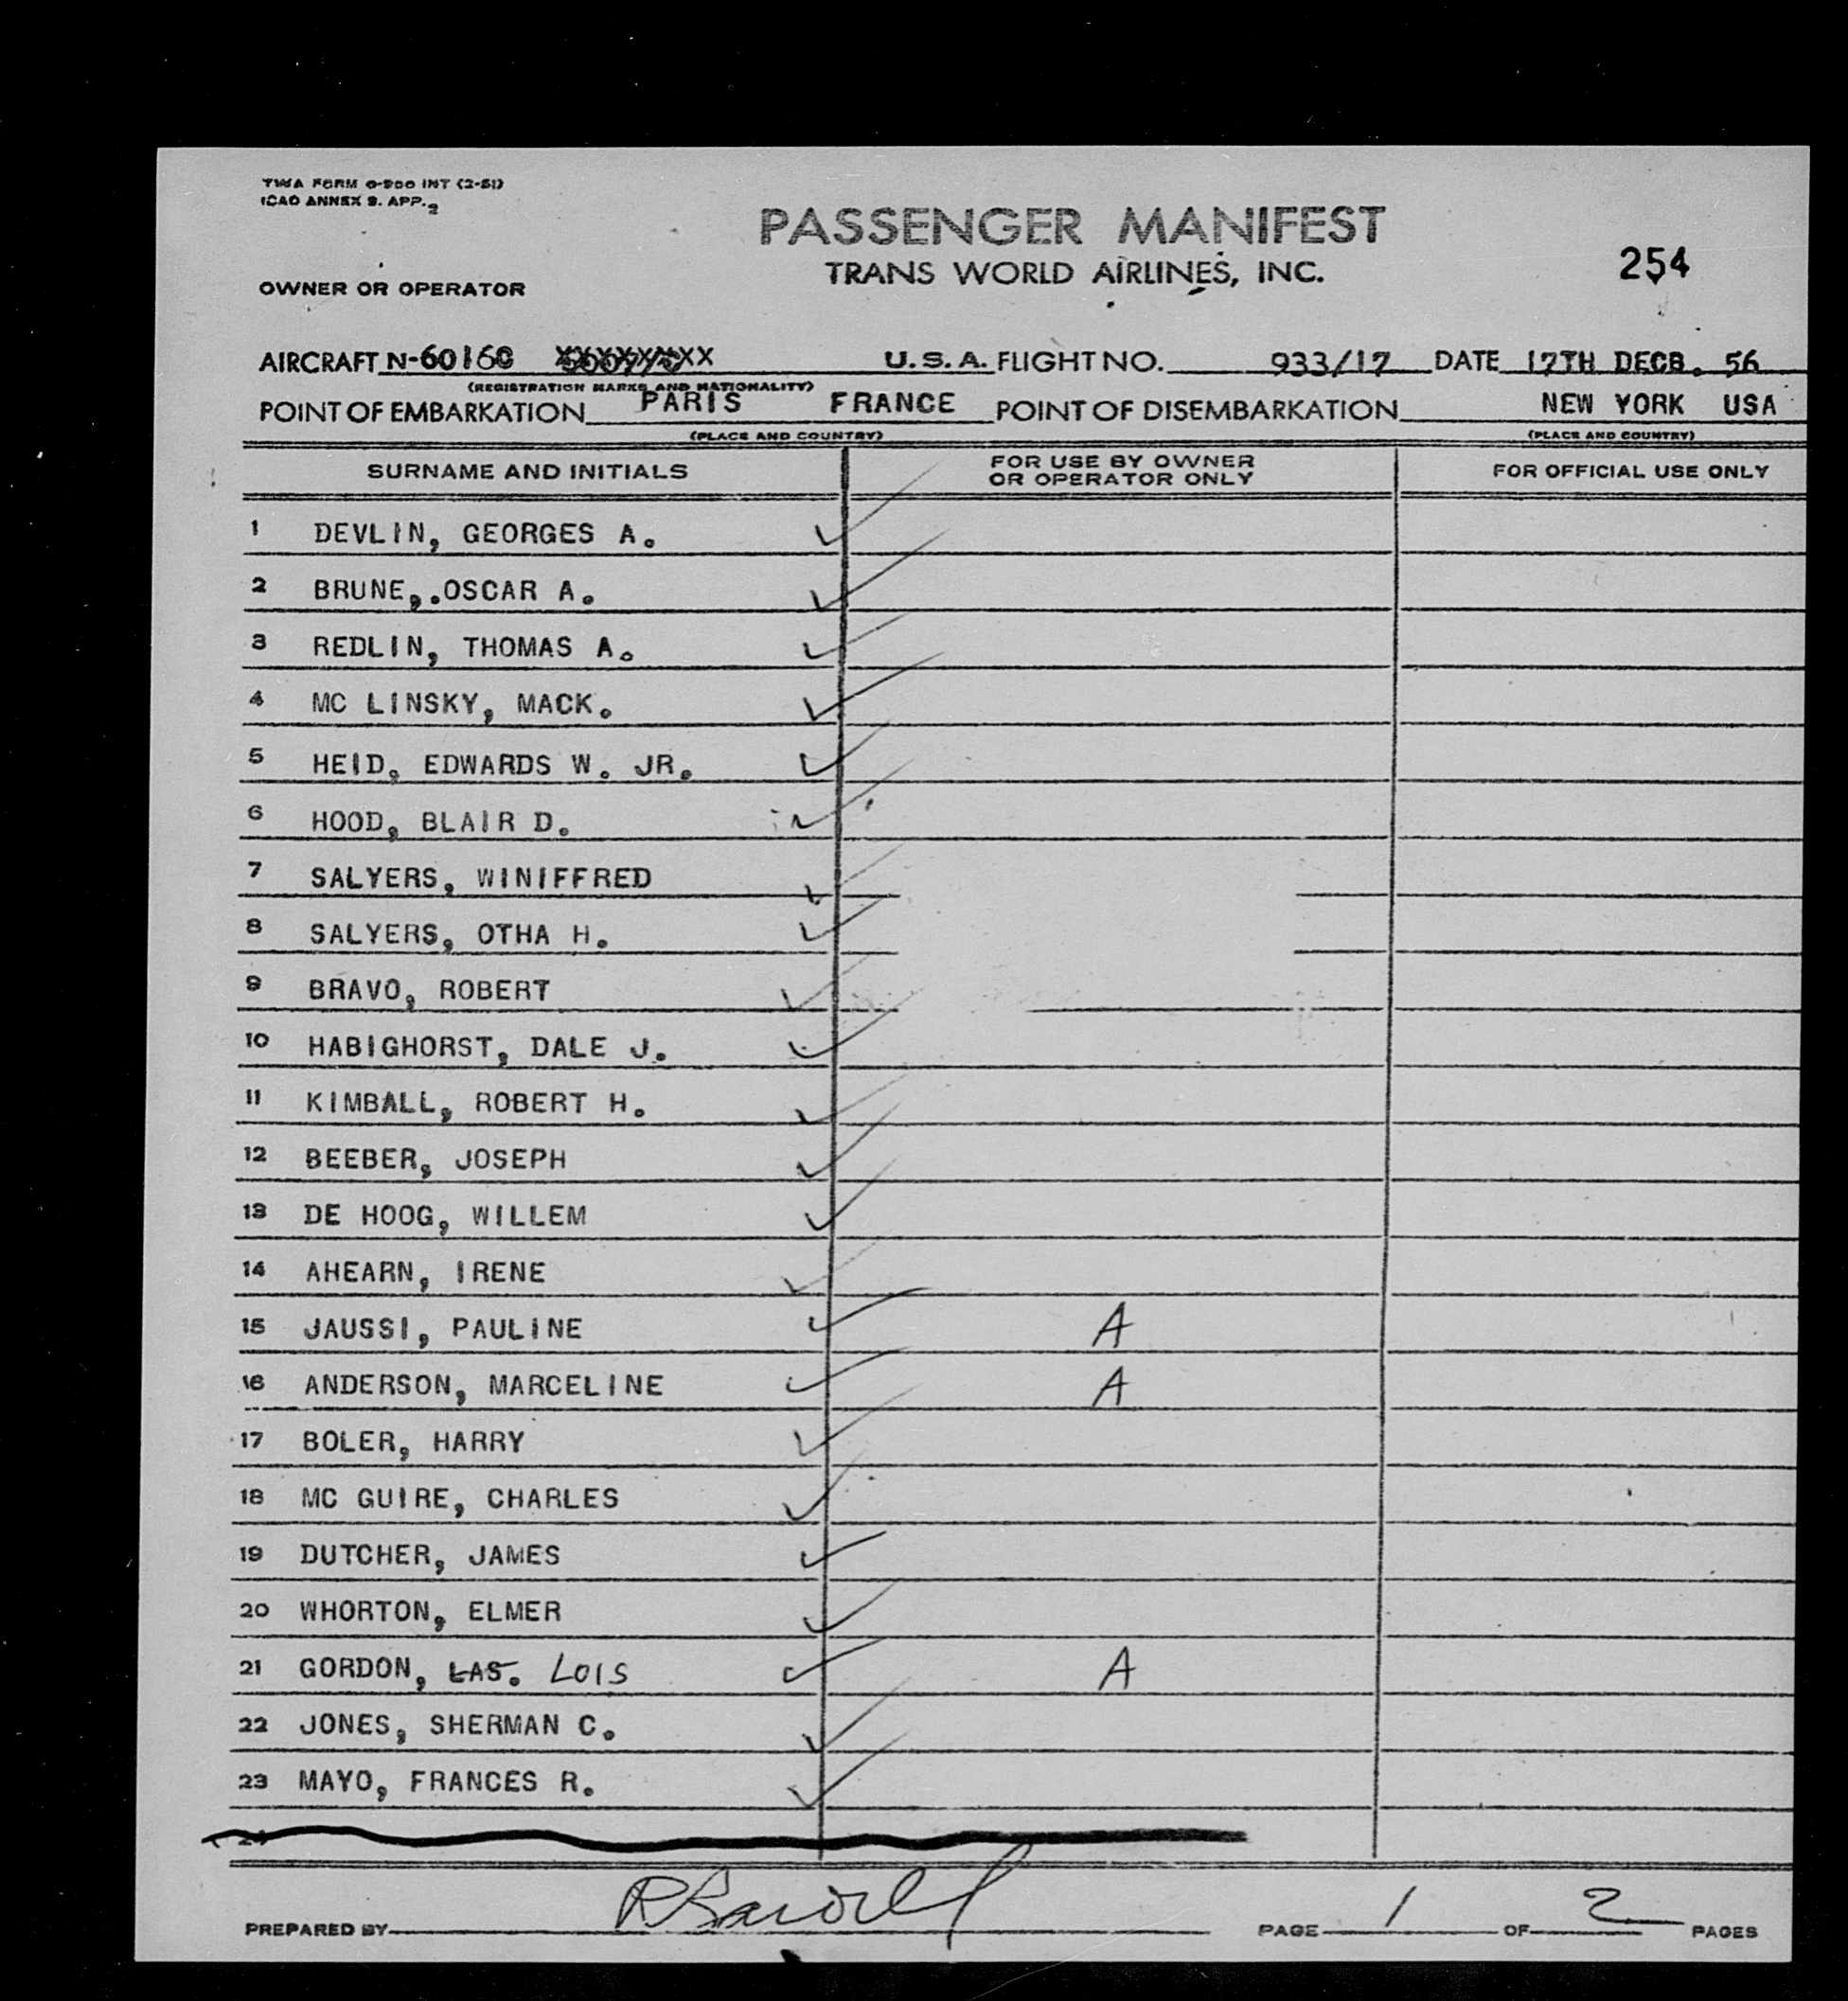 TWA FORM O-900 INT (2-51)
ICAO ANNEX 9. APP. 2
PASSENGER MANIFEST
TRANS WORLD AIRLINES, INC.
254
OWNER OR OPERATOR
AIRCRAFT N-6016C U.S.A. FLIGHT NO. 933/17 DATE 17TH DECB. 56
(REGISTRATION MARKS AND NATIONALITY)
POINT OF EMBARKATION PARIS FRANCE POINT OF DISEMBARKATION NEW YORK USA
(PLACE AND COUNTRY) (PLACE AND COUNTRY)
SURNAME AND INITIALS FOR USE BY OWNER OR OPERATOR ONLY FOR OFFICIAL USE ONLY
1 DEVLIN, GEORGES A.
2 BRUNE,.OSCAR A.
3 REDLIN, THOMAS A.
4 MC LINSKY, MACK.
5 HEID, EDWARDS W. JR.
6 HOOD, BLAIR D.
7 SALYERS, WINIFFRED
8 SALYERS, OTHA H.
9 BRAVO, ROBERT
10 HABIGHORST, DALE J.
11 KIMBALL, ROBERT H.
12 BEEBER, JOSEPH
13 DE HOOG, WILLEM
14 AHEARN, IRENE
15 JAUSSI, PAULINE A
16 ANDERSON, MARCELINE A
17 BOLER, HARRY
18 MC GUIRE, CHARLES
19 DUTCHER, JAMES
20 WHORTON, ELMER
21 GORDON, LAS. LOIS A
22 JONES, SHERMAN C.
23 MAYO, FRANCES R.
24
PREPARED BY PAGE 1 OF 2 PAGES